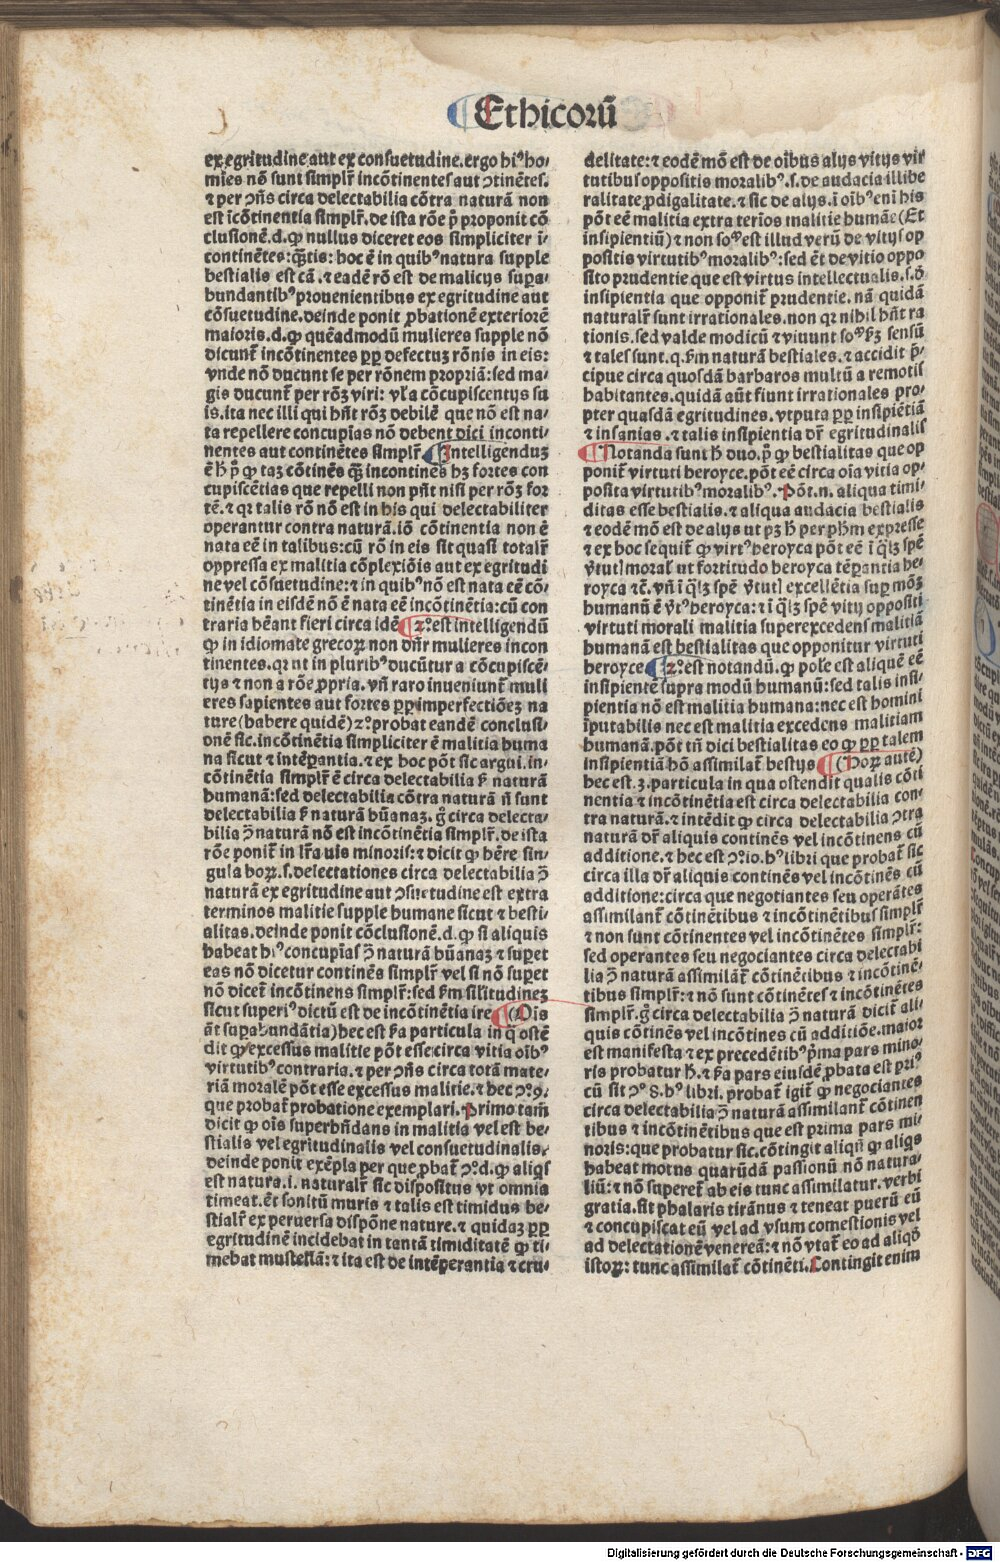 Ethicorū
ex egritudine aut ex consuetudine. ergo hiꝰ ho-
mies nō sunt simplr̄ incōtinentes aut ↄtinētes.
⁊ per ↄn̄s circa delectabilia cōtra naturā non
est īcōtinentia simplr̄. de ista rōe p̄ proponit cō
clusionē. d. ꝙ nullus diceret eos simpliciter ī-
continētes: q̄stis: hoc ē in quibꝰ natura supple
bestialis est cā. ⁊ eadē rō est de malicijs supa-
bundantibꝰ prouenientibus ex egritudine aut
cōsuetudine. deinde ponit ꝓbationē exteriorē
maioris. d. ꝙ quēadmodū mulieres supple nō
dicunt̄ incōtinentes ꝓp defectuꝫ rōnis in eis:
vnde nō ducunt se per rōnem propriā: sed ma-
gis ducunt̄ per rōꝫ viri: vl̄a cōcupiscentijs su
is. ita nec illi qui hn̄t rōꝫ debilē que nō est na-
ta repellere concupīas nō debent dici inconti-
nentes aut continētes simplr̄. Intelligenduꝫ
ē h̄ p̄ ꝙ taꝫ cōtinēs q̄ꝫ incontinēs hꝫ fortes con
cupiscētias que repelli non pn̄t nisi per rōꝫ for
tē. ⁊ qꝛ talis rō nō est in his qui delectabiliter
operantur contra naturā. iō cōtinentia non ē
nata eē in talibus: cū rō in eis sit quasi totalr̄
oppressa ex malitia cōplexiōis aut ex egritudi
ne vel cōsuetudine: ⁊ in quibꝰ nō est nata eē cō-
tinētia in eisdē nō ē nata eē incōtinētia: cū con
traria hēant fieri circa idē. 2ᵒ. est intelligendū
ꝙ in idiomate grecoꝝ non dn̄r mulieres incon
tinentes. qꝛ ut in pluribꝰ ducūtur a cōcupiscē-
tijs ⁊ non a rōe ꝓpria. vn̄ raro inueniunt̄ muli
eres sapientes aut fortes ꝓp imperfectiōeꝫ na
ture (habere quidē) 2ᵒ. probat eandē conclusi-
onē sic. incōtinētia simpliciter ē malitia huma
na sicut ⁊ intēperantia. ⁊ ex hoc pōt sic argui. in-
cōtinētia simplr̄ ē circa delectabilia ẜ naturā
humanā: sed delectabilia cōtra naturā n̄ sunt
delectabilia ẜ naturā hūanaꝫ. g̊ circa delecta-
bilia ↄ̄ naturā nō est incōtinētia simplr̄. de ista
rōe ponit̄ in lr̄a uis minoris: ⁊ dicit ꝙ hēre sin-
gula hoꝝ. s. delectationes circa delectabilia ↄ̄
naturā ex egritudine aut ↄsuetudine est extra
terminos malitie supple humane sicut ⁊ besti-
alitas. deinde ponit cōclusionē. d. ꝙ si aliquis
habeat hiꝰ concupīas ↄ̄ naturā hūanaꝫ ⁊ supet
eas nō dicetur continēs simplr̄ vel si nō supet
nō dicet̄ incōtinens simplr̄: sed ẜm silitudineꝫ
sicut superiꝰ dictū est de incōtinētia ire. (Ois
āt supabundātia) hec est ẜa particula in q̄ ostē
dit ꝙ excessus malitie pōt esse circa vitia oībꝰ
virtutibꝰ contraria. ⁊ per ↄn̄s circa totā mate-
riā moralē pōt esse excessus malitie. ⁊ hec ↄᵒ. 9.
que probat̄ probatione exemplari. Primo tam̄
dicit ꝙ oīs superhn̄dans in malitia vel est be-
stialis vel egritudinalis vel consuetudinalis.
deinde ponit exēpla per que ꝓbat̄ ↄᵒ. d. ꝙ aliqs
est natura. i. naturalr̄ sic dispositus vt omnia
timeat. ēt sonitū muris ⁊ talis est timidus be-
stialr̄ ex peruersa dispōne nature. ⁊ quidaꝫ ꝓp
egritudinē incidebat in tantā timiditatē ꝙ ti-
mebat mustellā: ⁊ ita est de intēperantia ⁊ cru-
delitate: ⁊ eodē mō est de oībus alijs vitijs vir
tutibus oppositis moralibꝰ. s. de audacia illibe
ralitate ꝓdigalitate. ⁊ sic de alijs. ī oībꝰ enī his
pōt eē malitia extra terīos malitie humāe (Et
insipientiū) ⁊ non soᵐ est illud verū de vitijs op
positis virtutibꝰ moralibꝰ: sed ēt de vitio oppo
sito prudentie que est virtus intellectualis. s. ō
insipientia que opponit̄ prudentie. nā quidā
naturalr̄ sunt irrationales. non qꝛ nihil hn̄t ra
tionis. sed valde modicū ⁊ viuunt soᵐ ẜꝫ sensū
⁊ tales sunt. q. ẜm naturā bestiales. ⁊ accidit p̄-
cipue circa quosdā barbaros multū a remotis
habitantes. quidā aūt fiunt irrationales pro-
pter quasdā egritudines. vtputa ꝓp insipiētiā
⁊ insanias. ⁊ talis insipientia dr̄ egritudinalis
Notanda sunt h̄ duo. p̄ ꝙ bestialitas que op
ponit̄ virtuti heroyce. pōt eē circa oīa vitia op-
posita virtutibꝰ moralibꝰ. Pōt. n. aliqua timi-
ditas esse bestialis. ⁊ aliqua audacia bestialis
⁊ eodē mō est de alijs ut pꝫ h̄ per ph̄m expresse
⁊ ex hoc sequit̄ ꝙ virtꝰ heroyca pōt eē ī q̄lꝫ spē
v̄tutꝭ moral̄ ut fortitudo heroyca tēpantia he-
royca ⁊c̄. vn̄ ī q̄lꝫ spē v̄tutꝭ excellētia sup mōꝫ
humanū ē v̄tꝰ heroyca: ⁊ ī q̄lꝫ spē vitij oppositi
virtuti morali malitia superexcedens malitiā
humanā est bestialitas que opponitur virtuti
heroyce. 2ᵒ. est notandū. ꝙ pole est aliquē eē
insipientē supra modū humanū: sed talis insi-
pientia nō est malitia humana: nec est homini
īputabilis nec est malitia excedens malitiam
humanā. pōt tn̄ dici bestialitas eo ꝙ ꝓp talem
insipientiā hō assimilat̄ bestijs (Hoꝝ autē)
hec est. 3. particula in qua ostendit qualis cōti
nentia ⁊ incōtinētia est circa delectabilia con-
tra naturā. ⁊ intēdit ꝙ circa delectabilia ↄtra
naturā dr̄ aliquis continēs vel incōtinens cū
additione. ⁊ hec est ↄᵒ io. hꝰ libri que probat̄ sic
circa illa dr̄ aliquis continēs vel incōtinēs cū
additione: circa que negotiantes seu operātes
assimilant̄ cōtinētibus ⁊ incōtinētibus simplr̄
⁊ non sunt cōtinentes vel incōtinētes simplr̄:
sed operantes seu negociantes circa delectabi
lia ↄ̄ naturā assimilāt̄ cōtinētibus ⁊ incōtinē-
tibus simplr̄: ⁊ nō sunt cōtinētes ⁊ incōtinētes
simplr̄. g̊ circa delectabilia ↄ̄ naturā dicit̄ ali-
quis cōtinēs vel incōtines cū additiōe. maior
est manifesta ⁊ ex precedētibꝰ p̄ma pars mino-
ris probatur h̄. ⁊ ẜa pars eiusdē ꝓbata est priꝰ
cū sit ↄᵒ 8. hꝰ libri. probat̄ igit̄ ꝙ negociantes
circa delectabilia ↄ̄ naturā assimilant̄ cōtinen
tibus ⁊ incōtinētibus que est prima pars mi-
noris: que probatur sic. cōtingit aliqn̄ ꝙ aliqs
habeat motus quarūdā passionū nō natura-
liū: ⁊ nō superet̄ ab eis tunc assimilatur. verbi
gratia. sit phalaris tirānus ⁊ teneat puerū eū
⁊ concupiscat eū vel ad vsum comestionis vel
ad delectationē venereā: ⁊ nō vtat̄ eo ad aliqō
istoꝝ: tunc assimilat̄ cōtinēti. Contingit enim
Digitalisierung gefördert durch die Deutsche Forschungsgemeinschaft - DFG